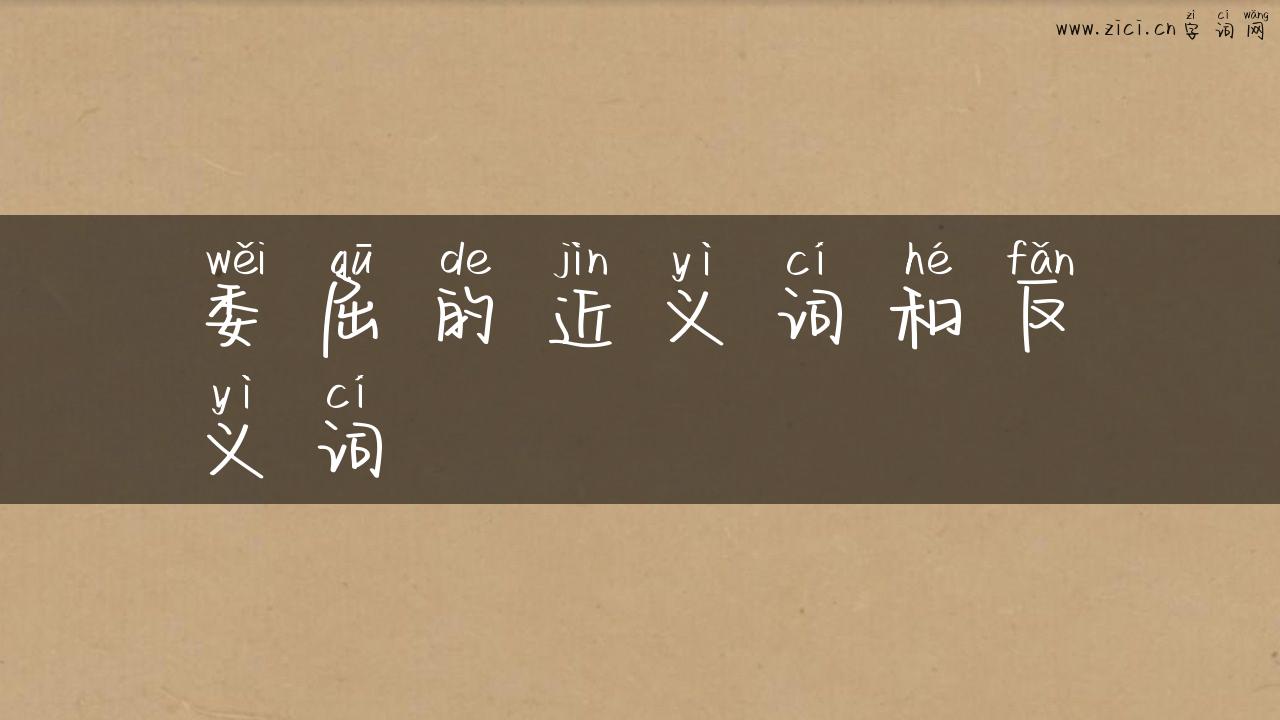 zì cí wǎng
www.zici.cn 字词网
wěi qū de jìn yì cí hé fǎn
委屈的近义词和反
yì cí
义词